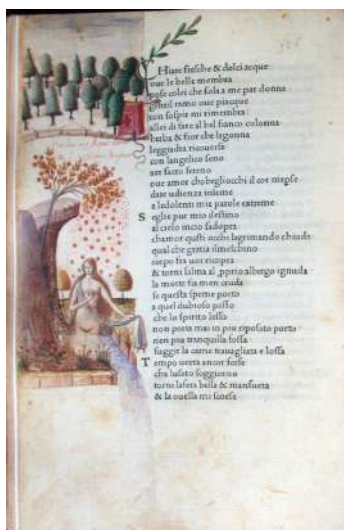 Hiare fresche & dolci acque
oue le belle membra
pose colei che sola a me par donna
gentil ramo oue piacque
con sospir mi rimembra
a lei di fare al bel fianco colonna
herba & fior che la gonna
leggiadra ricouerse
con langelico seno
aer sacro sereno
oue amor cho begliocchi il cor maperse
date udienza insieme
a le dolenti mie parole extreme
S egli e pur mio destino
el cielo in cio sadopra
chamor questi occhi lagrimando chiuda
qual che gratia il meschino
corpo fra uoi ricopra
& torni lalma al proprio albergo ignuda
la morte fia men cruda
se questa speme porto
a quel dubioso passo
che lo spirito lasso
non poria mai in piu riposato porto
ne in piu tranquilla fossa
fuggir la carne trauagliata e lossa
T empo uerra ancor forse
cha lusato soggiorno
torni la fera bella & mansueta
& la ouella mi scorse